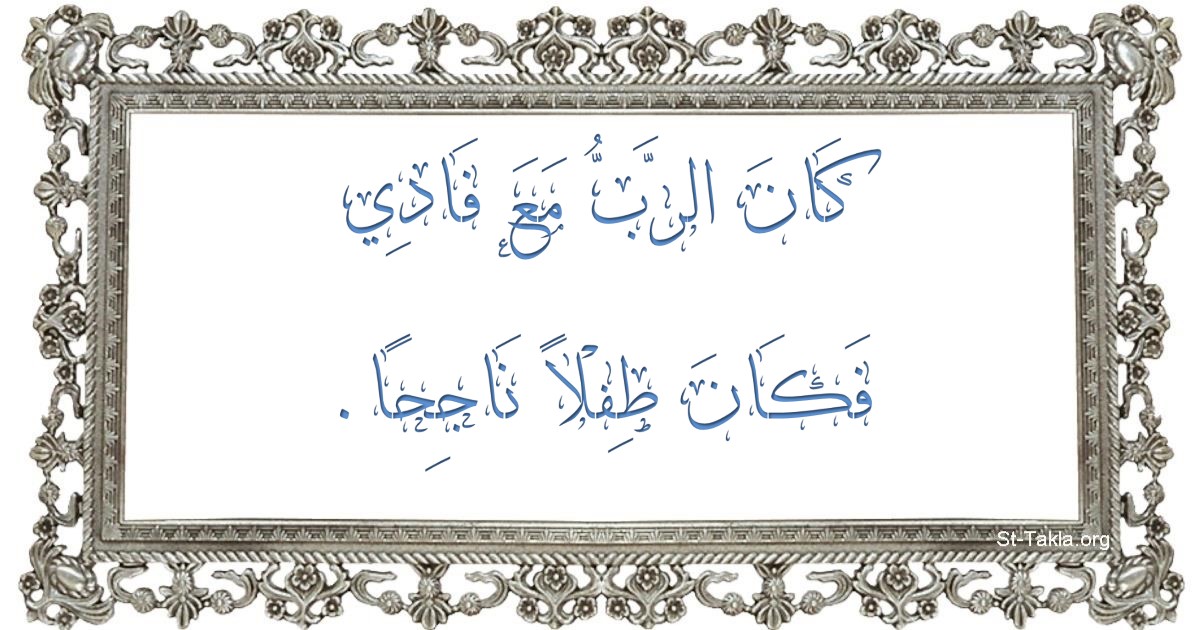 كَانَ الرَّبُّ مَعَ فَادِي
فَكَانَ طِفْلاً نَاجِحًا .
St-Takla.org